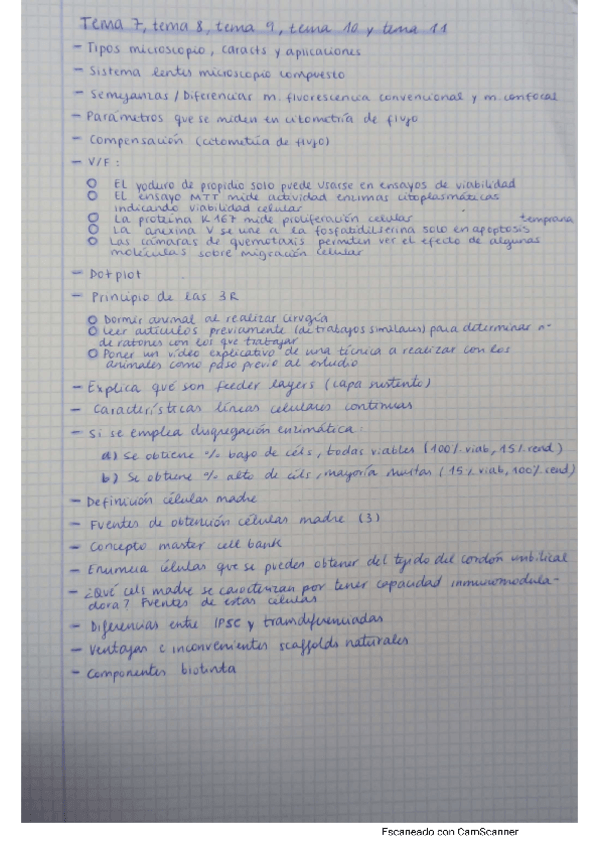 Tema 7, tema 8, tema 9, tema 10 y tema 11
- Tipos microscopio, caracts y aplicaciones
- Sistema lentes microscopio compuesto
- Semejanzas / Diferencias m. fluorescencia convencional y m. confocal
- Parámetros que se miden en citometría de flujo
- Compensación (citometría de flujo)
- V/F:
O El yoduro de propidio solo puede usarse en ensayos de viabilidad
O El ensayo MTT mide actividad enzimas citoplasmáticas
indicando viabilidad celular
O La proteína Ki67 mide proliferación celular
temprana
O La anexina V se une a la fosfatidilserina solo en apoptosis
O Las cámaras de quemotaxis permiten ver el efecto de algunas
moléculas sobre migración celular
- Dot plot
- Principio de las 3R
O Dormir animal al realizar cirugía
O Leer artículos previamente (de trabajos similares) para determinar nº
de ratones con los que trabajar
O Poner un vídeo explicativo de una técnica a realizar con los
animales como paso previo al estudio
- Explica qué son feeder layers (capa sustento)
- Características líneas celulares continuas
- Si se emplea disgregación enzimática:
a) Se obtiene % bajo de céls, todas viables (100% viab, 15% rend)
b) Se obtiene % alto de céls, mayoría muertas (15% viab, 100% rend)
- Definición células madre
- Fuentes de obtención células madre (3)
- Concepto master cell bank
- Enumera células que se pueden obtener del tejido del cordón umbilical
- ¿Qué cels madre se caracterizan por tener capacidad inmunomodula-
dora? Fuentes de estas células
- Diferencias entre IPSC y transdiferenciadas
- Ventajas e inconvenientes scaffolds naturales
- Componentes biotinta
Escaneado con CamScanner